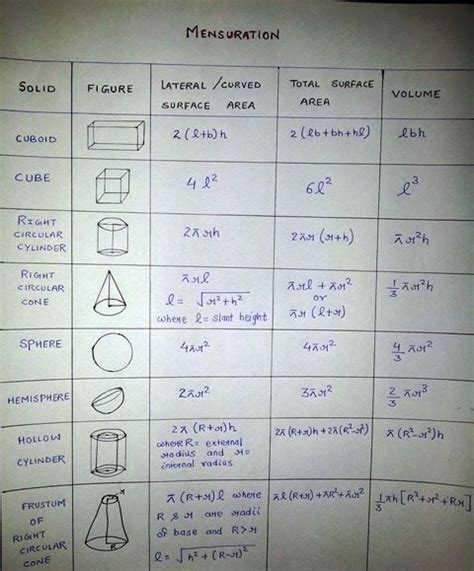 MENSURATION
SOLID FIGURE LATERAL /CURVED SURFACE AREA TOTAL SURFACE AREA VOLUME
CUBOID 2(l+b)h 2(lb+bh+hl) lbh
CUBE 4l² 6l² l³
RIGHT CIRCULAR CYLINDER 2πrh 2πr(r+h) πr²h
RIGHT CIRCULAR CONE πrl l= √r²+h² where l= slant height πrl + πr² or πr(l+r) 1/3 πr²h
SPHERE 4πr² 4πr² 4/3 πr²
HEMISPHERE 2πr² 3πr² 2/3 πr³
HOLLOW CYLINDER 2π(R+r)h where R= external radius and r= internal radius 2π(R+r)h+2π(R²-r²) π(R²-r²)h
FRUSTUM OF RIGHT CIRCULAR CONE r R π(R+r)l where R & r are radii of base and R>r l= √h²+(R-r)² πl(R+r)+πR²+πr² 1/3 πh[R²+r²+Rr]